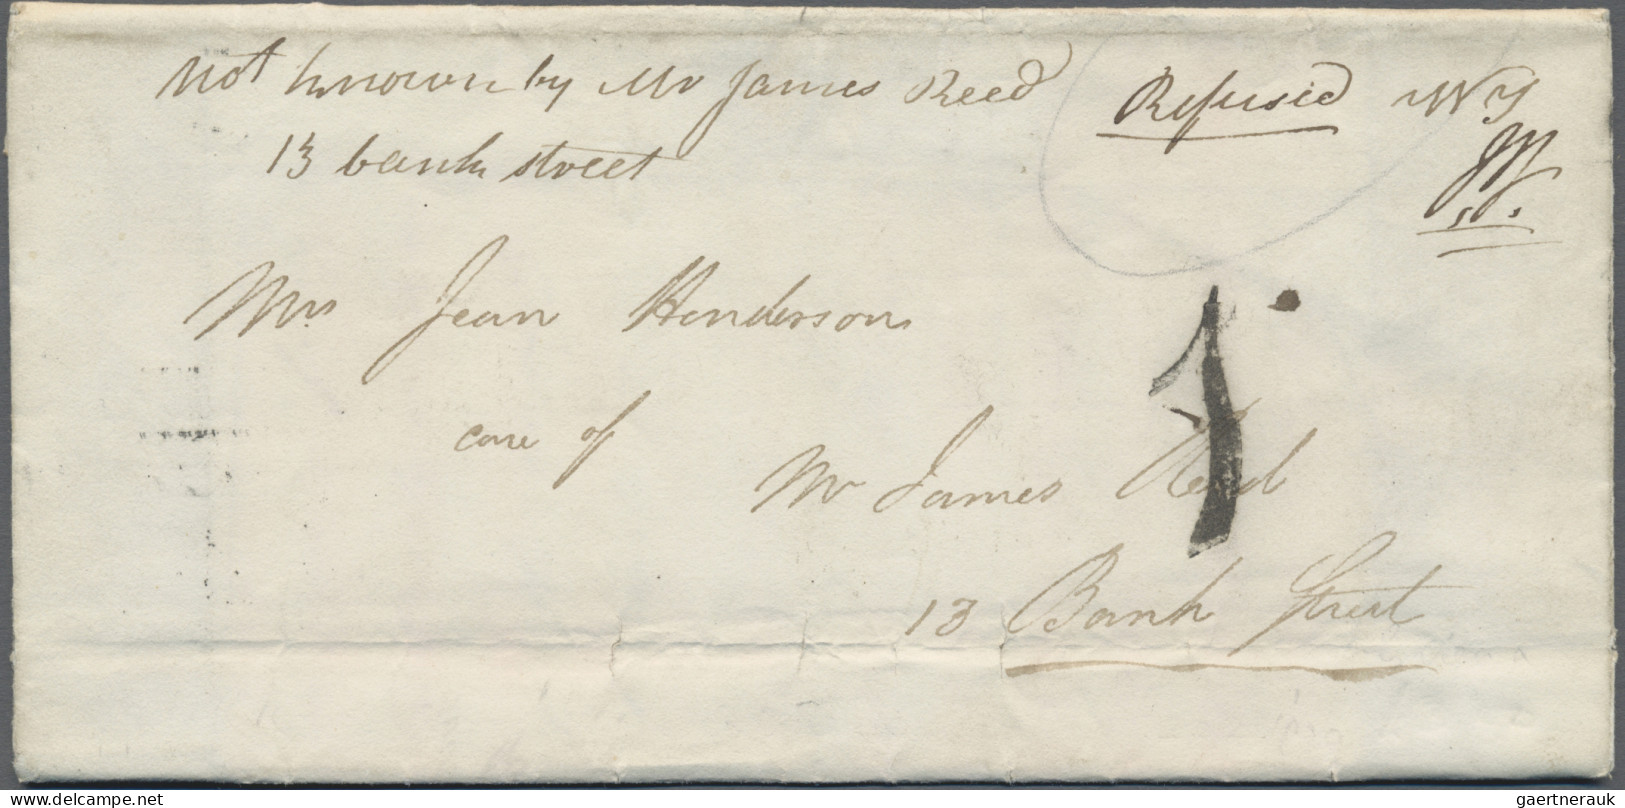 not known by Mr James Reed Refused
13 bank street
Mrs Jean Henderson
care of
Mr James Reid
13 Bank Street
1
gaertnerauk